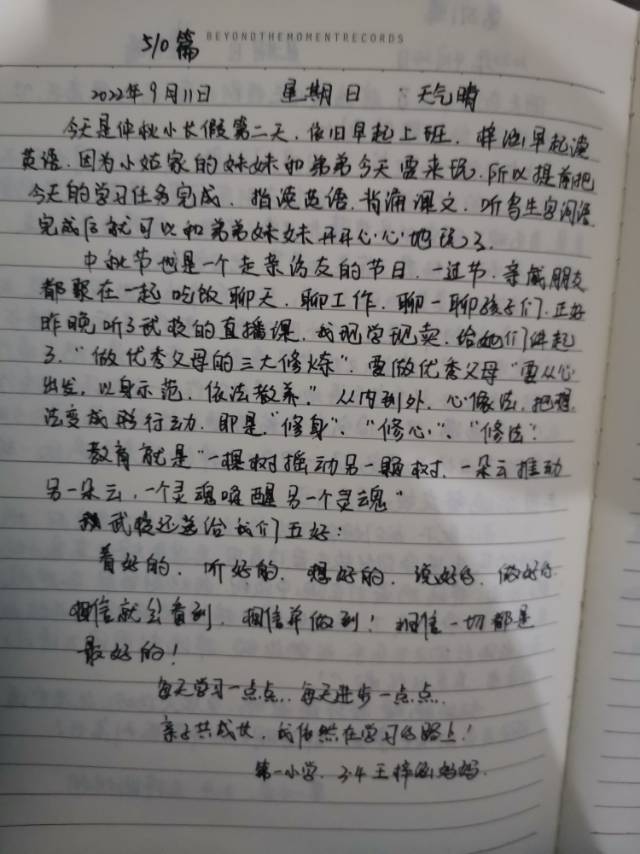 BEYONDTHEMOMENTRECORDS
510篇
2022年9月11日 星期日 天气晴
今天是仲秋小长假第二天，依旧早起上班，梓涵早起读
英语，因为小姑家的妹妹和弟弟今天要来玩，所以提前把
今天的学习任务完成，指读英语，背诵课文，听写生字词语，
完成后就可以和弟弟妹妹开开心心地玩了。
中秋节也是一个走亲访友的节日，一过节，亲戚朋友
都聚在一起吃饭聊天，聊工作，聊一聊孩子们，正好
昨晚听了武校的直播课，我现学现卖，给她们伴起
了，“做优秀父母的三大修炼”，要做优秀父母“要从心
出发，以身示范，依法教养。”从内到外，心像法，把想
法变成形行动，即是，“修身”、“修心”、“修法”
教育就是“一棵树摇动另一颗树，一朵云推动
另一朵云，一个灵魂唤醒另一个灵魂”
武校还送给我们五好：
看好的，听好的，想好的，说好的，做好的
相信就会看到，相信并做到！相信一切都是
最好的！
每天学习一点点，每天进步一点点，
亲子共成长，我依然在学习的路上！
第一小学，3.4王梓涵妈妈